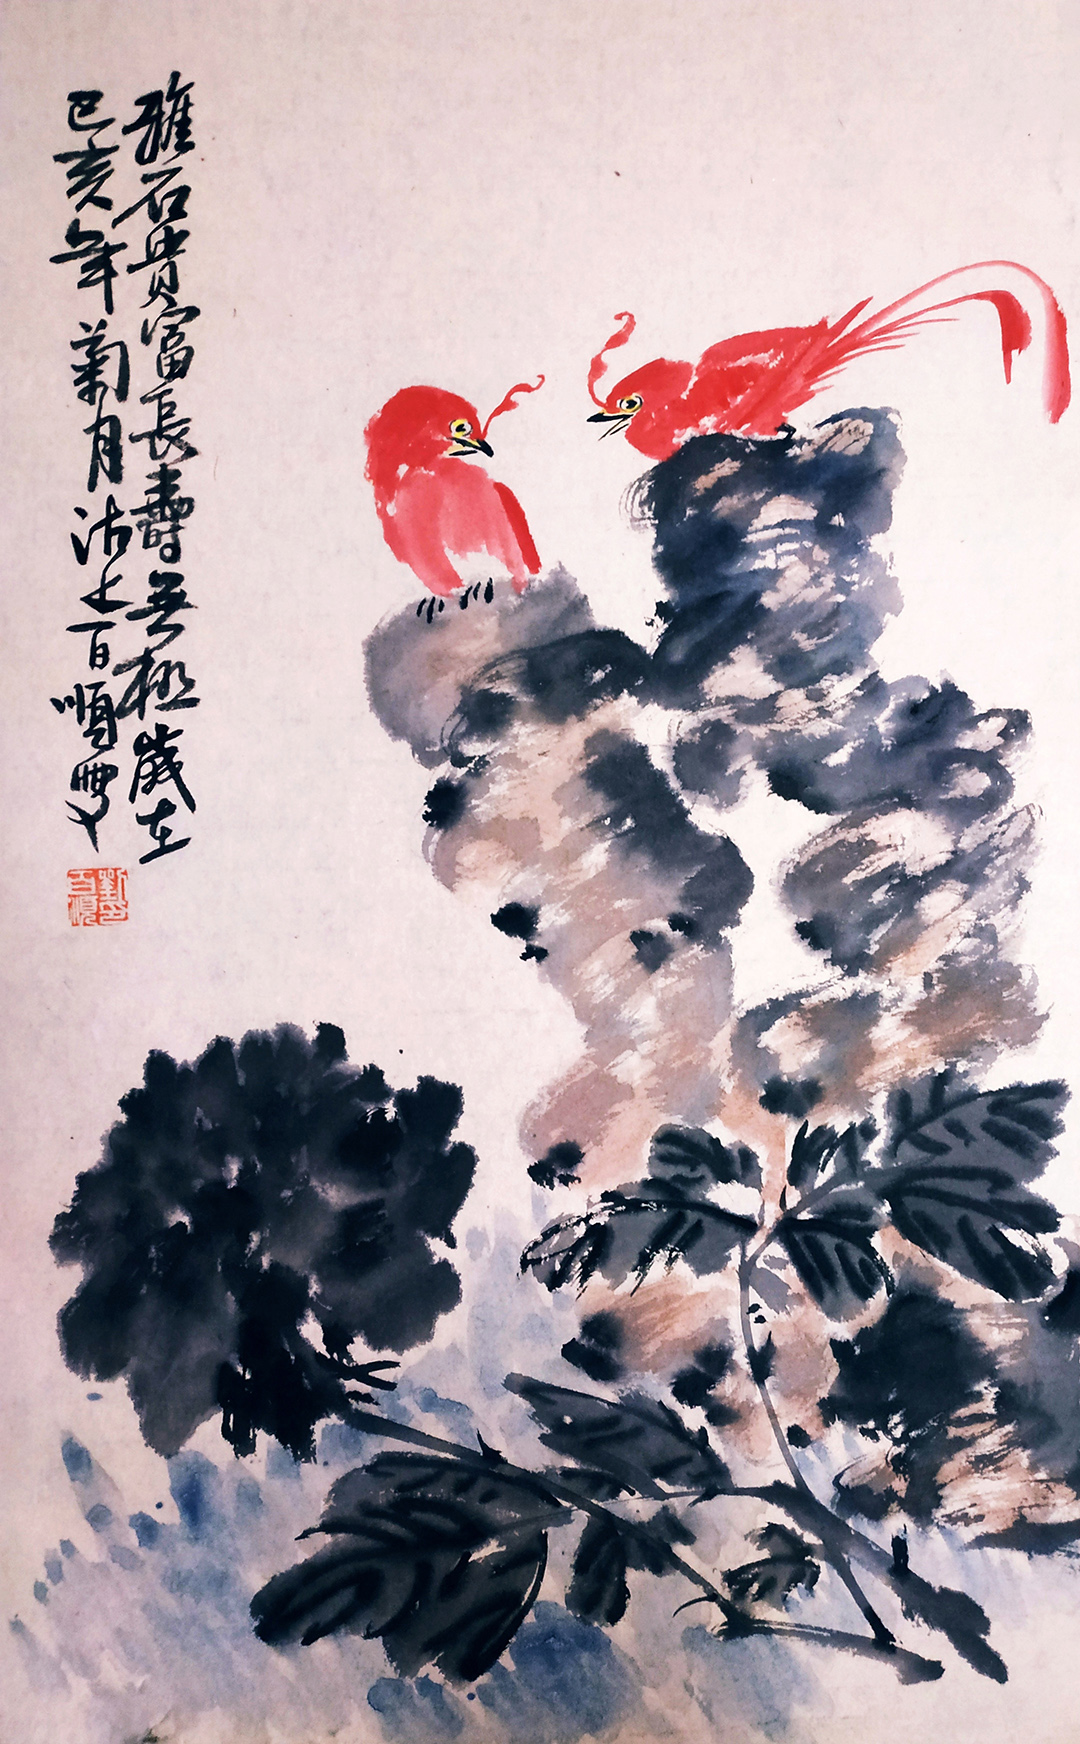 雅石貴富長壽無極歲在
己亥年菊月沽上百順寫